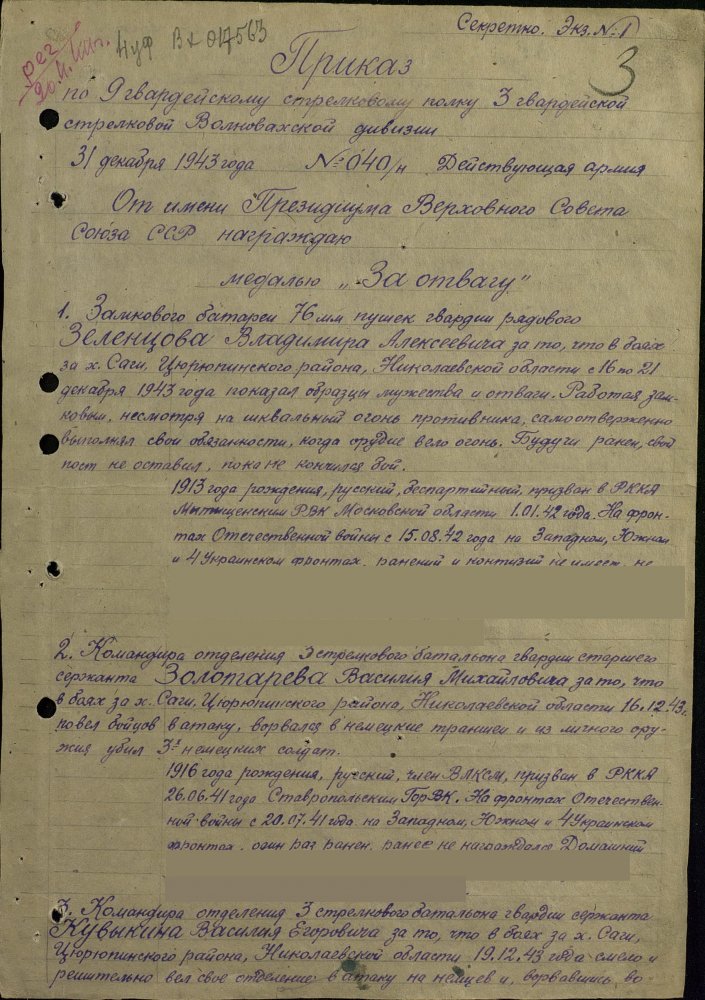 Секретно. Экз. № 1
рег
20.II.44г.
4уф Вх 017563
3
Приказ
по 9 гвардейскому стрелковому полку 3 гвардейской
стрелковой Волновахской дивизии
31 декабря 1943 года № 040/н Действующая армия
От имени Президиума Верховного Совета
Союза ССР награждаю
медалью „За отвагу"
1. Замкового батареи 76 мм пушек гвардии рядового
Зеленцова Владимира Алексеевича за то, что в боях
за х. Саги, Цюрюпинского района, Николаевской области с 16 по 21
декабря 1943 года показал образцы мужества и отваги. Работая зам-
ковым, несмотря на шквальный огонь противника, самоотверженно
выполнял свои обязанности, когда орудие вело огонь. Будучи ранен, свой
пост не оставил, пока не кончился бой.
1913 года рождения, русский, беспартийный, призван в РККА
Мытищенским РВК Московской области 1.01.42 года. На фрон-
тах Отечественной войны с 15.08.42 года на Западном, Южном
и 4 Украинском фронтах. ранений и контузий не имеет. не
2. Командира отделения 3 стрелкового батальона гвардии старшего
сержанта Золотарева Василия Михайловича за то, что
в боях за х. Саги, Цюрюпинского района, Николаевской области 16.12.43.
повел бойцов в атаку, ворвался в немецкие траншеи и из личного ору-
жия убил 3х немецких солдат.
1916 года рождения, русский, член ВЛКСМ, призван в РККА
26.06.41 года Ставропольским ГорВК. На фронтах Отечествен-
ной войны с 20.07.41 года на Западном, Южном и 4 Украинском
фронтах. один раз ранен. ранее не награждался Домашний
3. Командира отделения 3 стрелкового батальона гвардии сержанта
Кувыкина Василия Егоровича за то, что в боях за х. Саги,
Цюрюпинского района, Николаевской области 19.12.43 года смело и
решительно вел свое отделение в атаку на немцев и, ворвавшись, во-